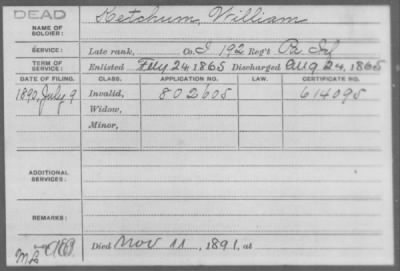 DEAD
NAME OF SOLDIER: Ketchum, William
SERVICE: Late rank, Co. I 192 Reg't Pa Inf
TERM OF SERVICE: Enlisted Feby 24, 1865 Discharged Aug 24, 1865
DATE OF FILING. CLASS. APPLICATION NO. LAW. CERTIFICATE NO.
1890, July 9 Invalid, 802605 614095
Widow,
Minor,
ADDITIONAL SERVICES:
REMARKS:
Died Nov 11, 1891, at